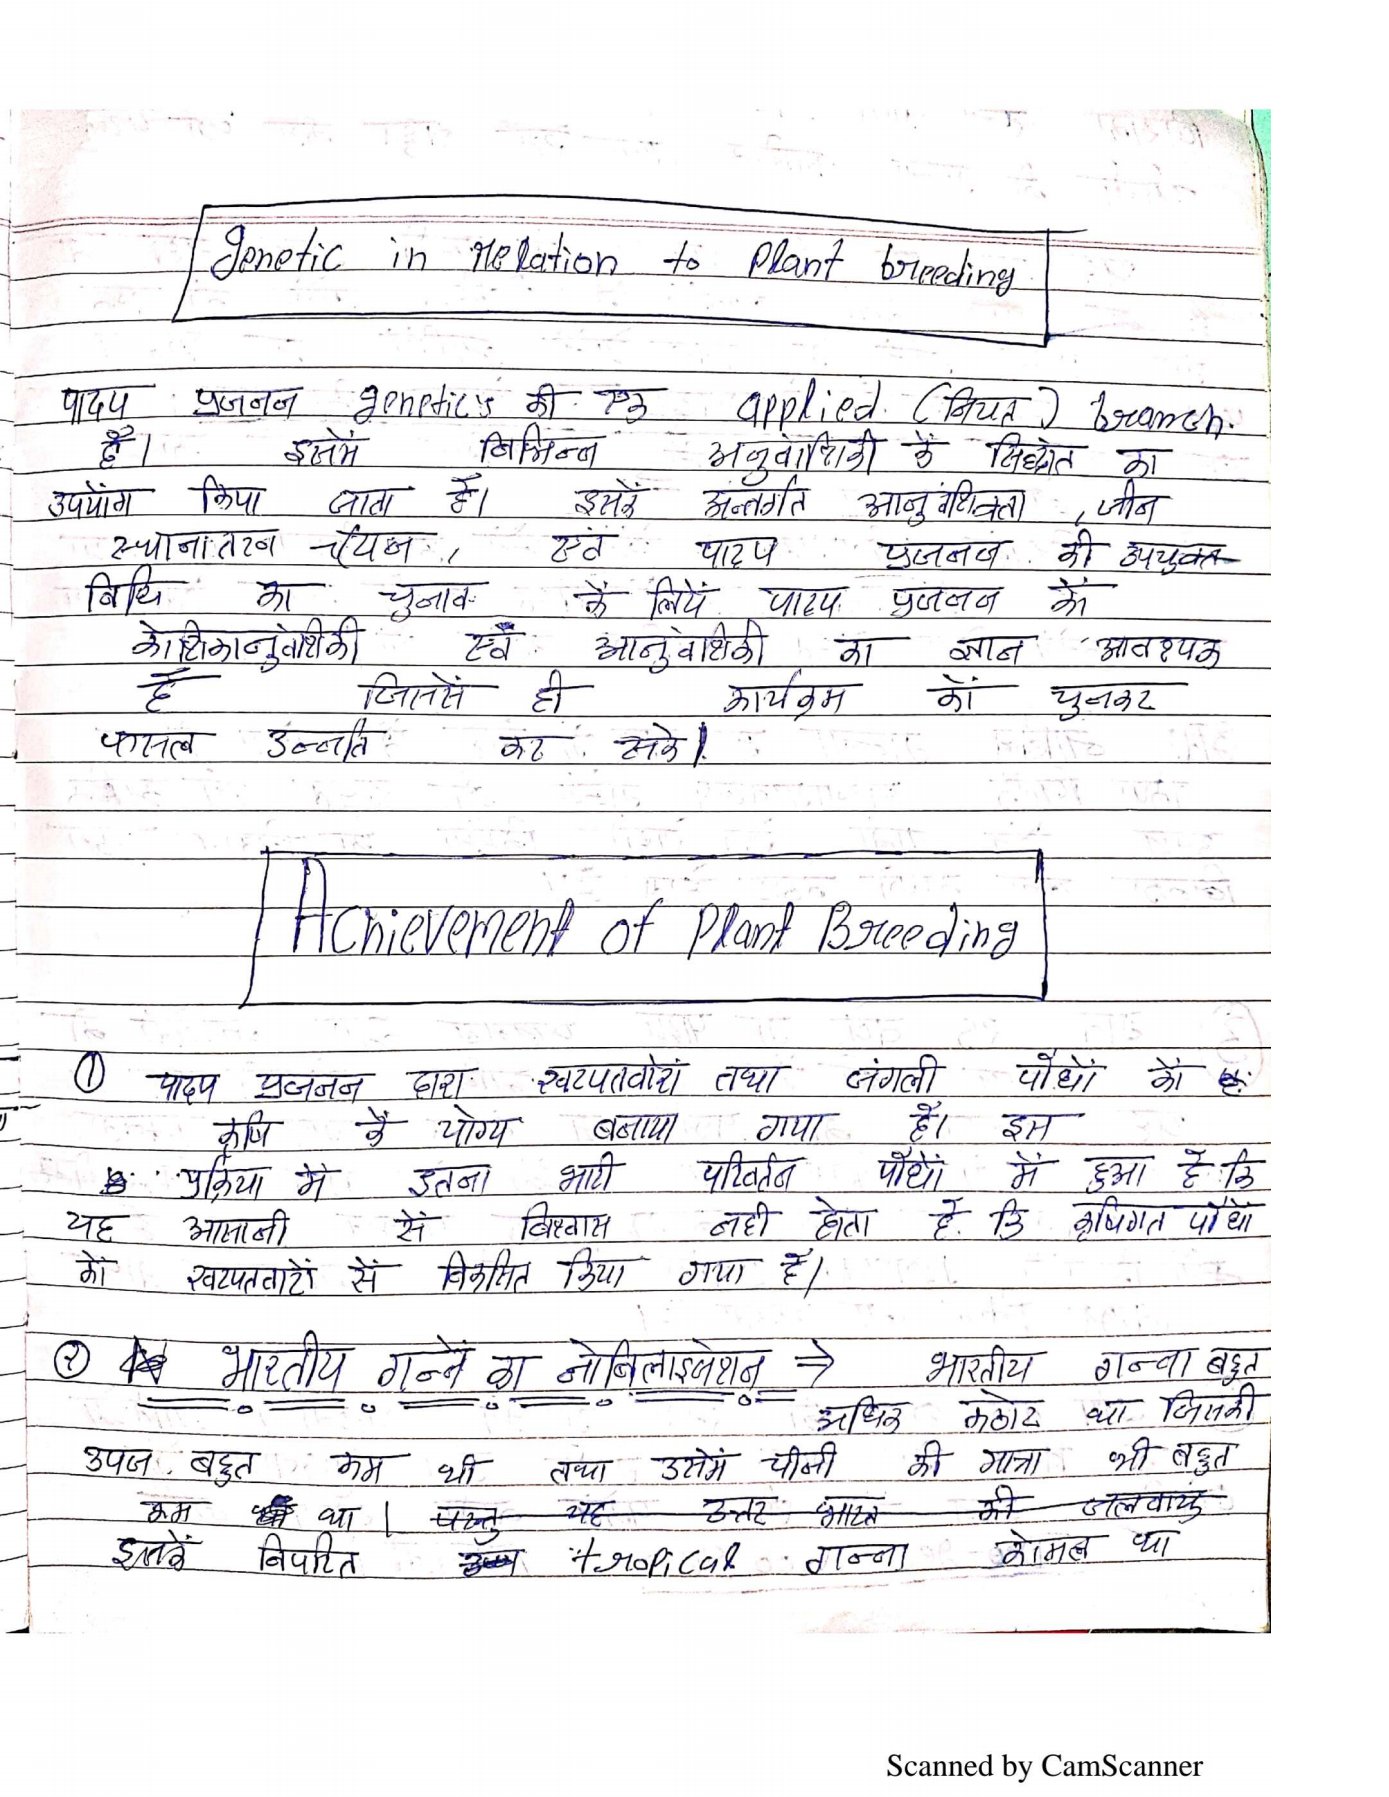 genetic in relation to plant breeding
पादप प्रजनन genetic's की एक applied (नियत) branch
है। इसमें विभिन्न अनुवांशिकी के सिद्धांत का
उपयोग किया जाता है। इसके अन्तर्गत आनुवंशिकता, जीन
स्थानांतरन चयन, एवं पादप प्रजनन की उपयुक्त
विधि का चुनाव के लिये पादप प्रजनन को
कोशिकानुवांशिकी एवं आनुवंशिकी का ज्ञान आवश्यक
है जिससे ही कार्यक्रम को चुनकर
फसल उन्नति कर सके।
Achievement of plant Breeding
① पादप प्रजनन द्वारा खरपतवारों तथा जंगली पौधों को
कृषि के योग्य बनाया गया है। इस
प्रक्रिया में इतना भारी परिवर्तन पौधों में हुआ है कि
यह आसानी से विश्वास नही होता है कि कृषिगत पौधों
को खरपतवारों से विकसित किया गया है।
② भारतीय गन्ने का नोबिलाइजेशन ⇒ भारतीय गन्ना बहुत
अधिक कठोर था जिसकी
उपज बहुत कम थी तथा उसमें चीनी की मात्रा भी बहुत
कम था। परन्तु यह उत्तर भारत की जलवायु
इसके विपरित tropical गन्ना कोमल था
Scanned by CamScanner